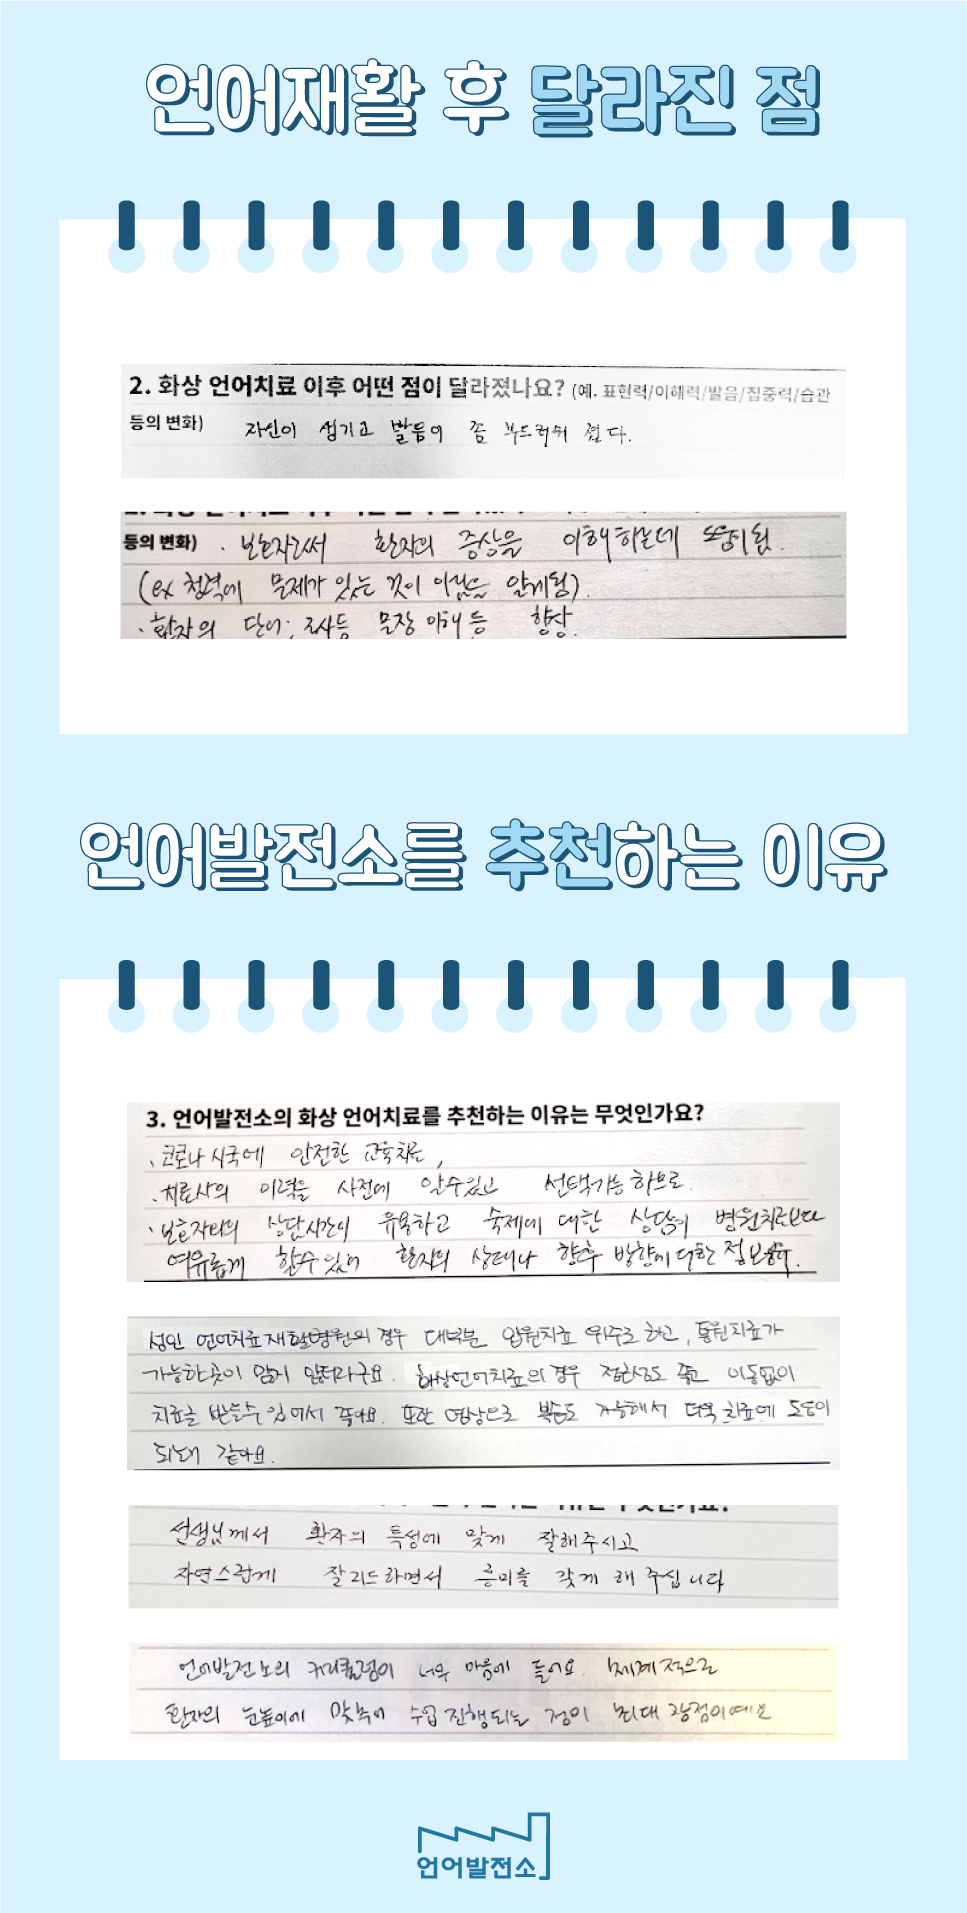 언어재활 후 달라진 점
2. 화상 언어치료 이후 어떤 점이 달라졌나요? (예. 표현력/이해력/발음/집중력/습관
등의 변화) 자신이 생기고 발음이 좀 부드러워 졌다.
등의 변화) · 보호자로써 환자의 증상을 이해하는데 도움이 됨.
(ex 청력에 문제가 있는 것이 아님을 알게됨).
· 환자의 단어, 조사등 문장 이해 등 향상.
언어발전소를 추천하는 이유
3. 언어발전소의 화상 언어치료를 추천하는 이유는 무엇인가요?
· 코로나 시국에 안전한 교육치료,
· 치료사의 이력을 사전에 알수있고 선택가능 하므로.
· 보호자와의 상담시간이 유용하고 숙제에 대한 상담이 병원치료보다
여유롭게 할수 있어 환자의 상태나 향후 방향에 대한 정보공유.
성인 언어치료 재활병원의 경우 대부분 입원치료 위주로 하고, 통원치료가
가능한곳이 많지 않더라구요. 화상언어치료의 경우 접근성도 좋고 이동없이
치료를 받을수 있어서 좋아요. 또한 영상으로 복습도 가능해서 더욱 치료에 도움이
되는거 같아요.
선생님께서 환자의 특성에 맞게 잘해주시고
자연스럽게 잘 리드하면서 흥미를 갖게 해 주십니다
언어발전소의 커리큘럼이 너무 마음에 들어요. 체계적으로
환자의 눈높이에 맞추어 수업 진행되는 점이 최대 장점이에요
언어발전소